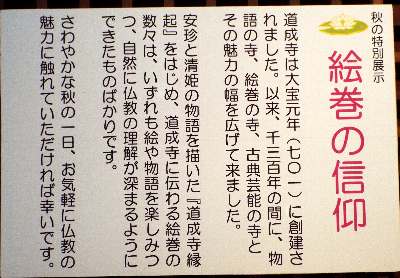 秋の特別展示
絵巻の信仰
道成寺は大宝元年（七〇一）に創建さ
れました。以来、千三百年の間に、物
語の寺、絵巻の寺、古典芸能の寺と
その魅力の幅を広げて来ました。
安珍と清姫の物語を描いた『道成寺縁
起』をはじめ、道成寺に伝わる絵巻の
数々は、いずれも絵や物語を楽しみつ
つ、自然に仏教の理解が深まるように
できたものばかりです。
さわやかな秋の一日、お気軽に仏教の
魅力に触れていただければ幸いです。